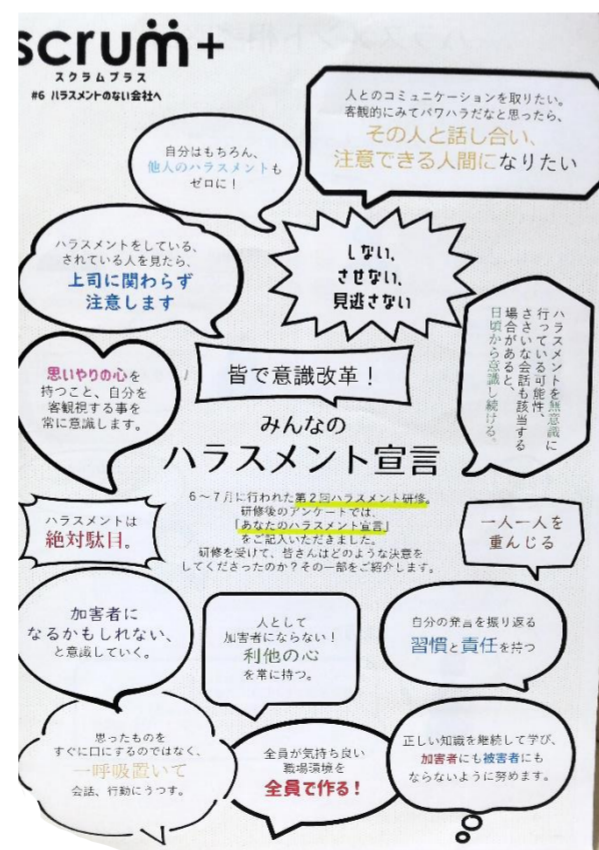 scrum+
スクラムプラス
#6 ハラスメントのない会社へ
人とのコミュニケーションを取りたい。
客観的にみてパワハラだなと思ったら、
その人と話し合い、
注意できる人間になりたい
自分はもちろん、
他人のハラスメントも
ゼロに！
ハラスメントをしている、
されている人を見たら、
上司に関わらず
注意します
しない、
させない、
見逃さない
ハラスメントを無意識に
行っている可能性、
ささいな会話も該当する
場合があると、
日頃から意識し続ける。
思いやりの心を
持つこと、自分を
客観視する事を
常に意識します。
皆で意識改革！
みんなの
ハラスメント宣言
6～7月に行われた第2回ハラスメント研修。
研修後のアンケートでは、
「あなたのハラスメント宣言」
をご記入いただきました。
研修を受けて、皆さんはどのような決意を
してくださったのか？その一部をご紹介します。
ハラスメントは
絶対駄目。
一人一人を
重んじる
加害者に
なるかもしれない、
と意識していく。
人として
加害者にならない！
利他の心
を常に持つ。
自分の発言を振り返る
習慣と責任を持つ
思ったものを
すぐに口にするのではなく、
一呼吸置いて
会話、行動にうつす。
全員が気持ち良い
職場環境を
全員で作る！
正しい知識を継続して学び、
加害者にも被害者にも
ならないように努めます。